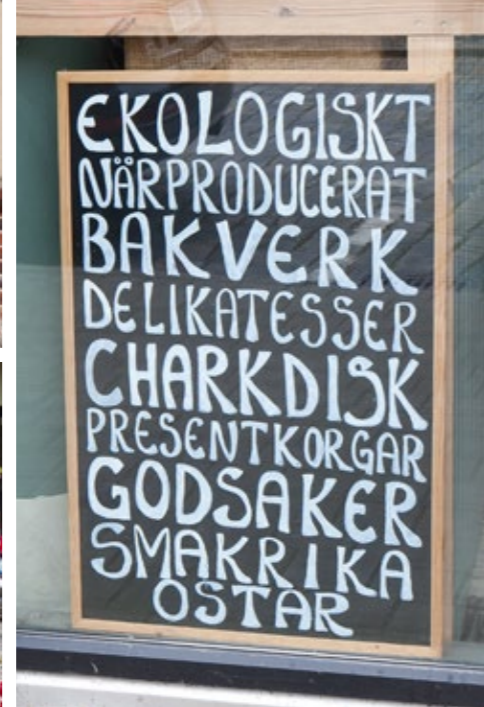 EKOLOGISKT
NÄRPRODUCERAT
BAKVERK
DELIKATESSER
CHARKDISK
PRESENTKORGAR
GODSAKER
SMAKRIKA
OSTAR